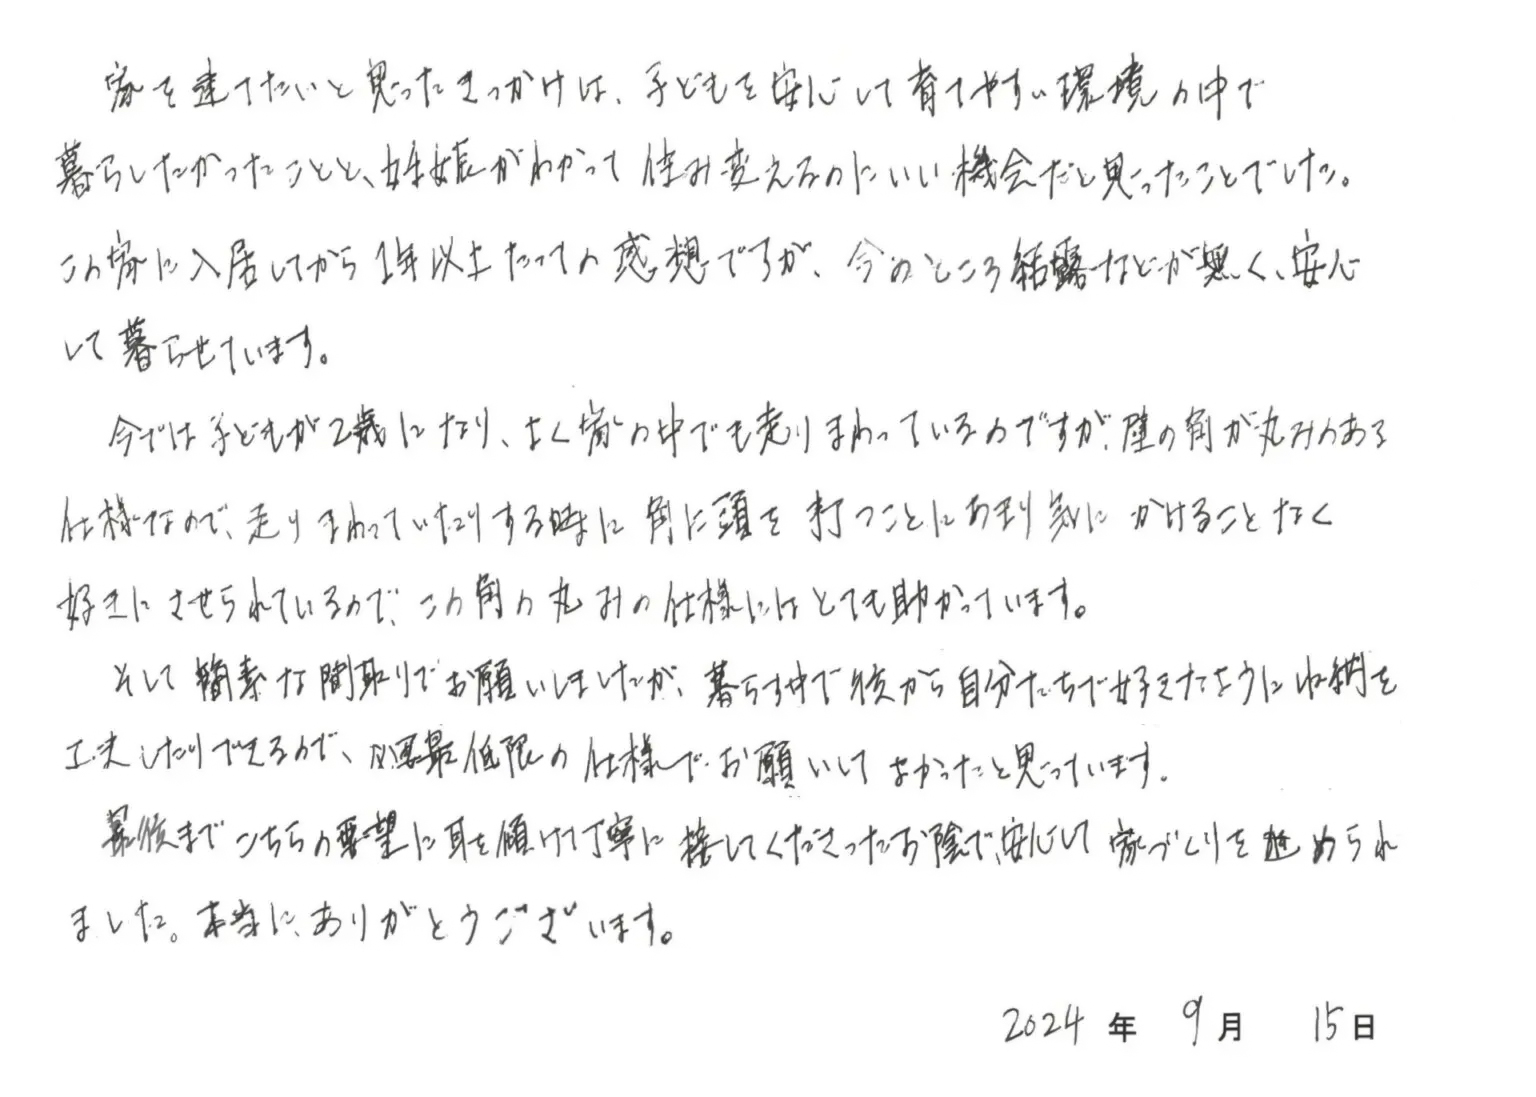 家を建てたいと思ったきっかけは、子どもを安心して育てやすい環境の中で
暮らしたかったことと、妊娠がわかって住み変えるのにいい機会だと思ったことでした。
この家に入居してから1年以上たっての感想ですが、今のところ結露などが無く、安心
して暮らせています。
今では子どもが2歳になり、よく家の中でも走りまわっているのですが、壁の角が丸みのある
仕様なので、走りまわっていたりする時に角に頭を打つことにあまり気にかけることなく
好きにさせられているので、この角の丸みの仕様にはとても助かっています。
そして簡素な間取りでお願いしましたが、暮らす中で後から自分たちで好きなように収納を
工夫したりできるので、必要最低限の仕様でお願いしてよかったと思っています。
最後までこちらの要望に耳を傾けて丁寧に接してくださったお陰で、安心して家づくりを進められ
ました。本当に、ありがとうございます。
2024年 9月 15日